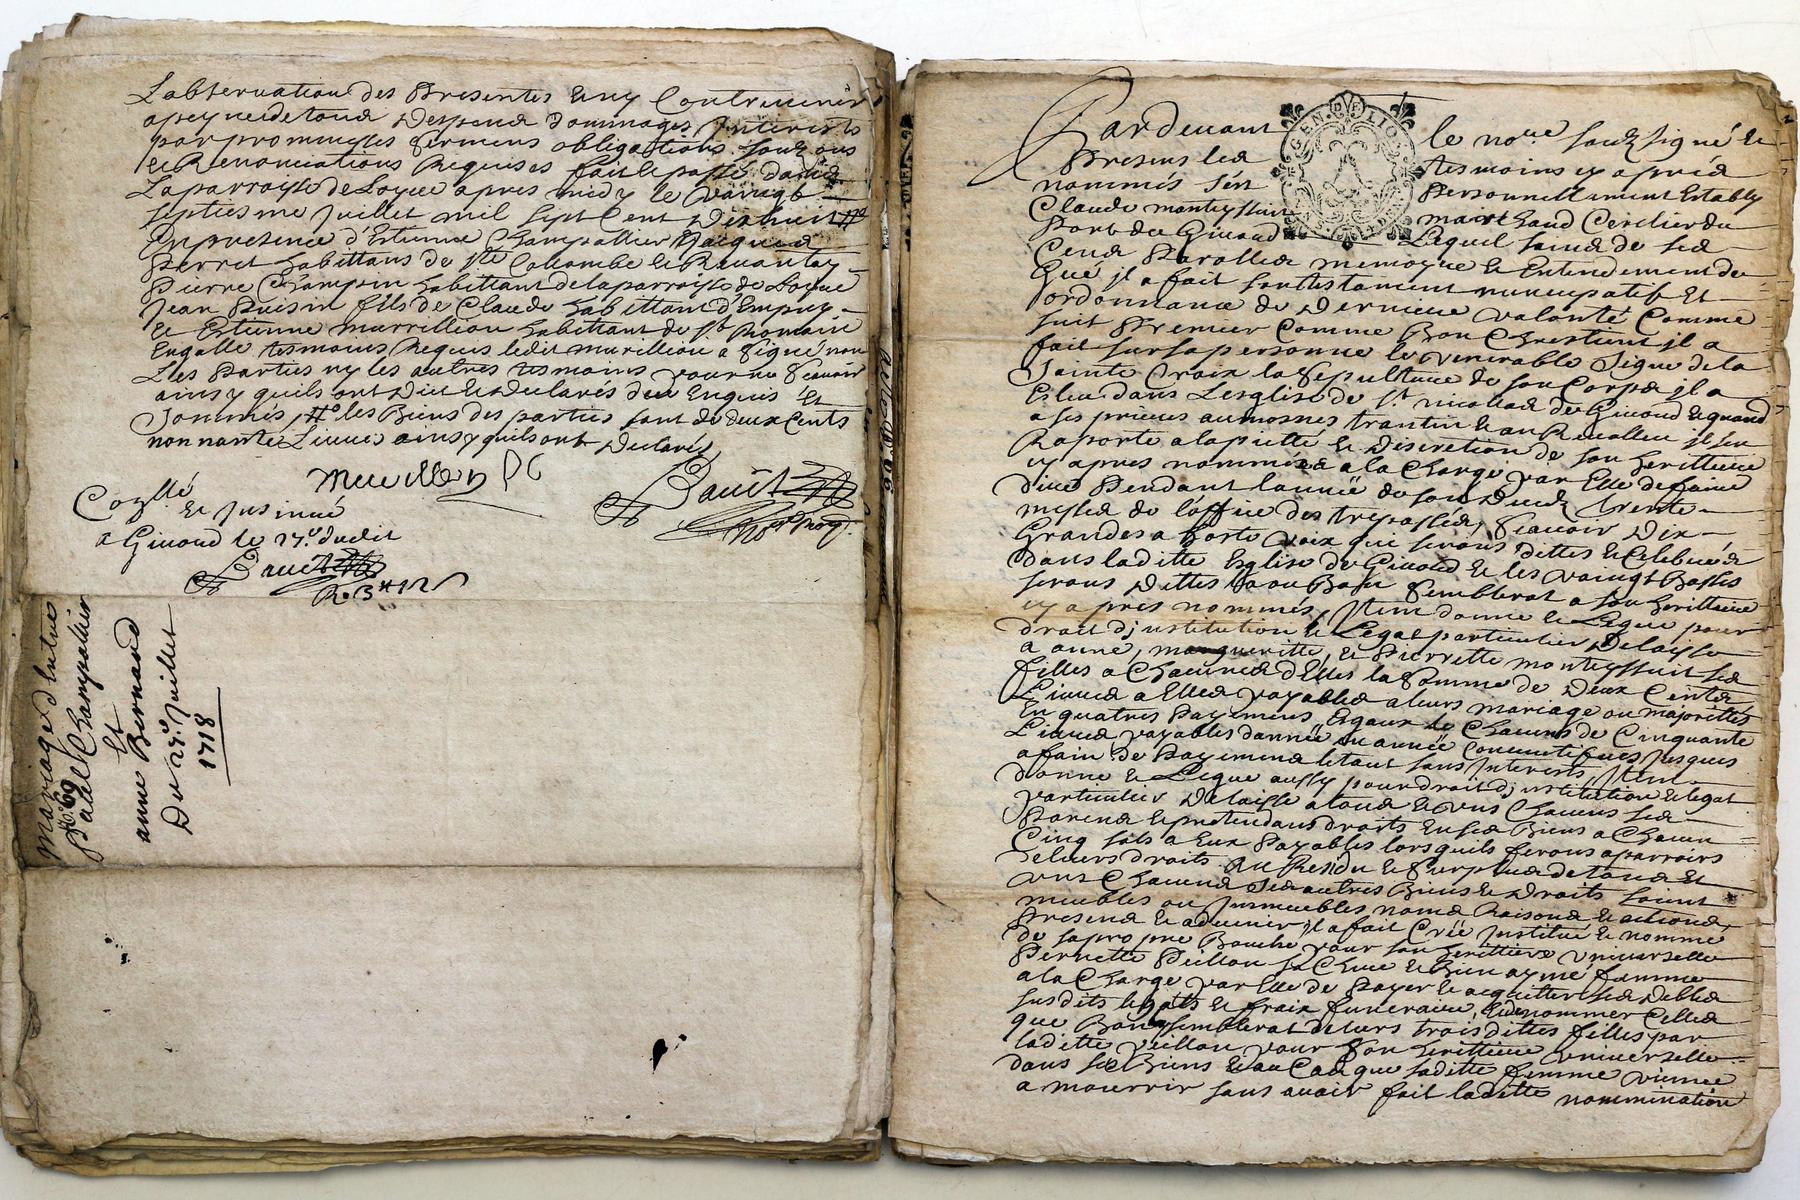 Lobservation des presentes eny Contrevenir
apeyne de tous Despend dommages Interests
par promesses sermens obligations
et Renonciations Requises fait et passé dans
La parroisse de Loyre apres midy le vaingt
septiesme Juillet mil sept Cent Dixhuit
En presence d'Estienne Champallier Jacques
Perret habittans de Ste Collombe
Pierre Champin habittant de la parroisse de Loyre
Jean fils de Claude habittant d'Empuy
et Estienne murrillion habittant de St Romain
Engalle tesmoins Requis ledit murillion a signé non
Les Parties ny les autres tesmoins pour ne sçavoir
ainsy quils ont Dict et declarés deu Enquis Et
Sommés, les Biens des parties sont de deux Cents
nonnante Livres ainsy quils ont Declaré
Cozllé et Insinué
a Givord le 27e dudit
mariage d'Entre
No. 69
Champallier
Et
anne Bernard
Du 27e Juillet
1718
GEN. DE LION
Pardevant le nore souzsigné et
Presens les tesmoins cy apres
nommés personnellement Estably
Claude monteyssuit marchand Cerclier du
Port de Givord Lequel sain de ses
Cens Parolles memoyre et Entendement
Que jl a fait son testament nuncupatif et
ordonnance de Derniere volonté Comme
suit Premier Comme Bon Chrestient jl a
fait sur sa personne le venerable signe de la
Sainte Croix la sepulture de son Corps jl a
Esleu dans Lesglise de St nicollas de Givord et quand
a ses prieres aumosnes trantin et an Revollu jl sen
Raporte a la piette et Discretion de son herittiere
cy apres nommée a la Charge par Elle de faire
dire Pendant lannée de son Deceds trente
messes de l'office des trespassés, sçavoir Dix
Grandes a horte voix que serons dittes et Celebrées
dans laditte Esglise de Givord et les vaingt Basses
serons Dittes ou Bon semblerat a son herittiere
cy apres nommée, Item donne et Legue pour
droit djnstitution et Legat particulier Delaysse
a anne, margueritte, et Pierrette monteyssuit ses
filles a Chacunes d'Elles la somme de Deux Cents
Livres a Elles payables a leurs mariage ou majorittés
En quatres payemens Esgaux de Chacuns de Cinquante
Livres payables dannée en année Consecutifves jusques
a fain de payement le tout sans Interests, Item
donne et Legue aussy pour droit djnstitution et legat
particulier Delaisse a tous et uns Chacuns ses
Parens et pretendans droits En ses Biens a Chacun
Cinq sols a Eux Payables lorsquils ferons aparroirs
de leurs droits Au Residu et surplus de tous Et
uns Chacuns Ses autres Biens et Droits soient
meubles ou Immeubles noms Raisons et actions
Presens et advenir, jl a fait Créé Institué et nomme
de sa propre Bouche pour son herittiere universelle
Pernette Peillon sa Chere et Bien aymé femme
a la Charge par Elle de Payer et acquitter ses Debtes
susdits legats et fraix funeraire, et de nommer Celles
que Bon semblerat de leurs trois dittes filles par
laditte peillon pour son herittiere universelle
dans ses Biens et au Cas que saditte femme vienne
a mourrir sans avoir fait laditte nommination